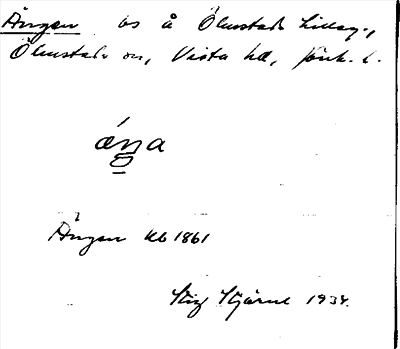 Ängen ås å Ölmstads Lilleg.,
Ölmstads sn, Vista hd, Jönk. l.
äŋa
Ängen kb 1861
Stig Stjärne 1934.